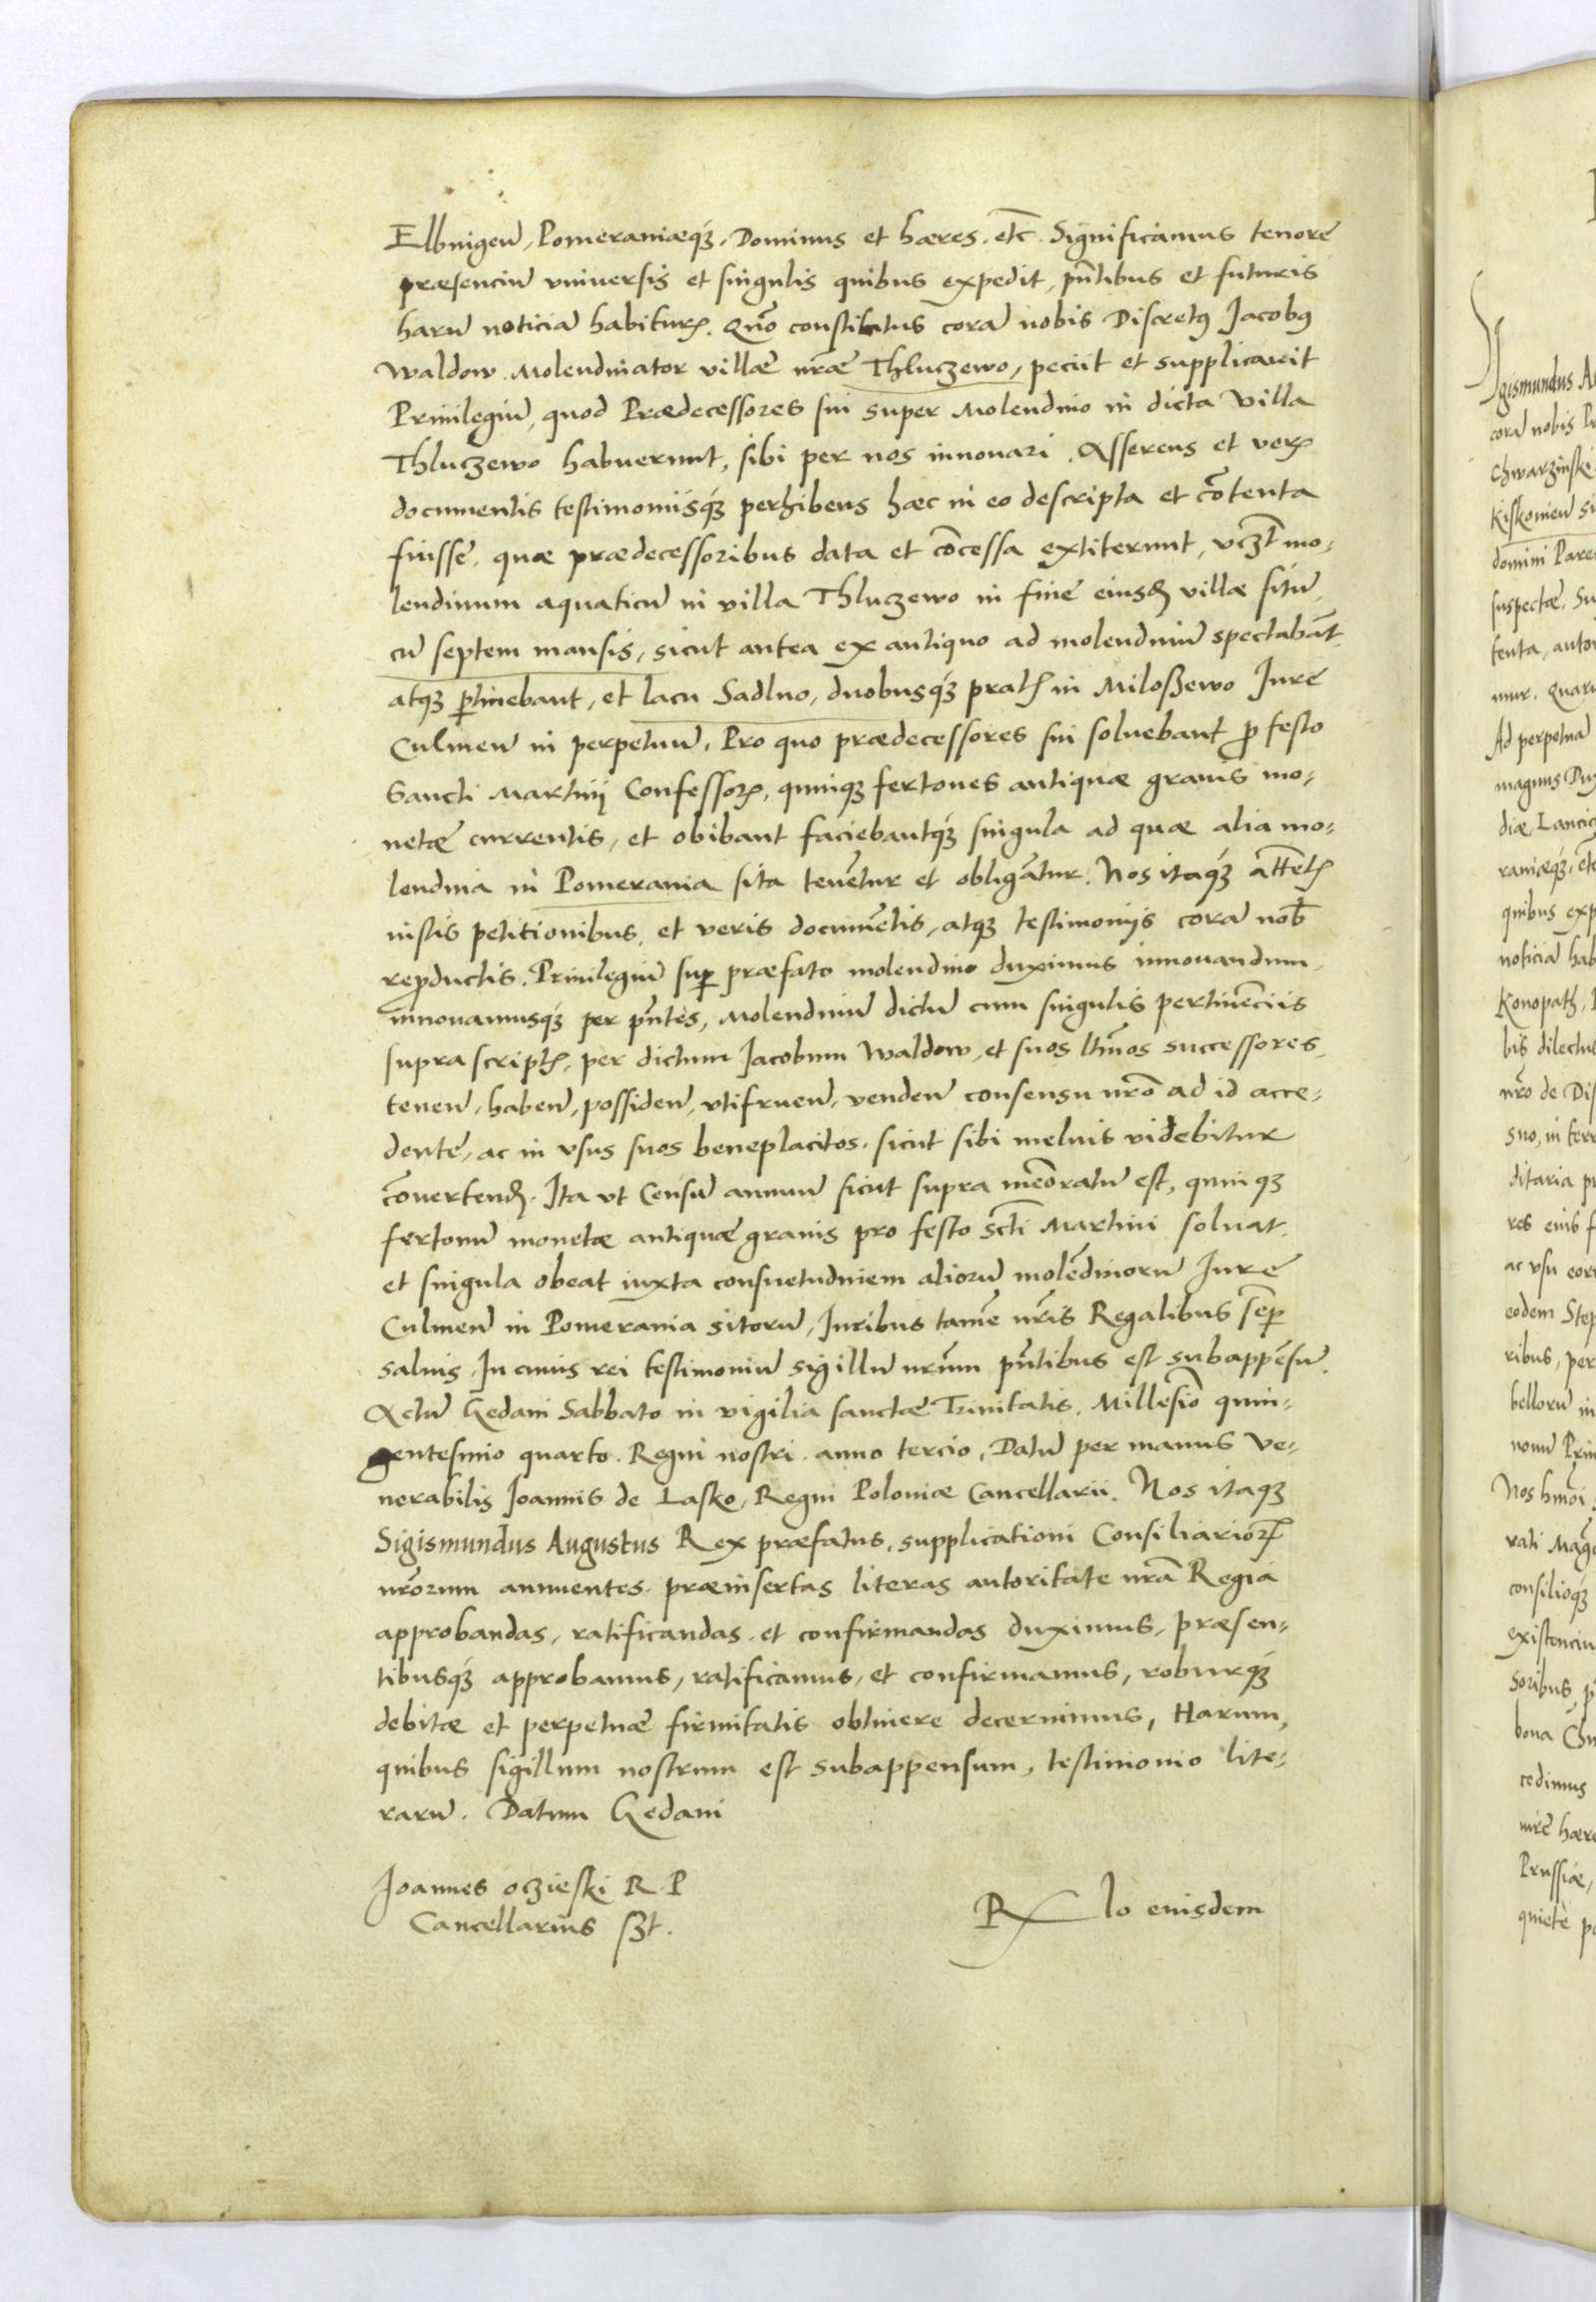 Elbingeñ, Pomeraniæq́ꝫ. Dominus et hæres. etc̄. Significamus tenore
præsenciū vniuersis et singulis quibus expedit, pñtibus et futuris
harū noticiā habiturꝭ. Quō constitutus corā nobis Discretꝰ Jacobꝰ
Waldow. Molendinator villæ nr̄æ Thluczewo, peciit et supplicauit
Priuilegiū, quod Prædecessores sui super Molendino in dicta Villa
Thluczewo habuerunt, sibi per nos innouari. Asserens et verꝭ
documentis testimoniisq́ꝫ perhibens hæc in eo descripta et cōtenta
fuisse. quæ prædecessoribus data et cōcessa extiterunt, vcꝫt mo-
lendinum aquaticū in villa Thluczewo in fine eiusꝫ villæ sitū,
cū septem mansis, sicut antea ex antiquo ad molendinū spectabāt
atqꝫ ꝑtinebant, et lacu Sadlno, duobusq́ꝫ pratꝭ in Miloßewo Jure
Culmeñ in perpetuū. Pro quo prædecessores sui soluebant ꝓ festo
Sancti Martinij Confessorꝭ, quinqꝫ fertones antiquæ grauis mo-
netæ currentis, et obibant faciebantq́ꝫ singula ad quæ alia mo-
lendina in Pomerania sita tenētur et obligātur. Nos itaq́ꝫ att̄etꝭ
iustis petitionibus, et veris documētis, atqꝫ testimonijs corā nob̄
reꝓductis. Priuilegiū suꝑ præfato molendino duximus innouandum,
innouamusq́ꝫ per pñtes, Molendinū dictū cum singulis pertinēciis
supra scriptꝭ, per dictum Jacobum Waldow, et suos ltīmos successores,
teneñ, habeñ, possideñ, vtifrueñ, vendeñ consensu nr̄o ad id acce-
dente, ac in vsus suos beneplacitos, sicut sibi melius videbitur
cōuertendꝭ. Ita vt Censū annuū sicut supra meōratū est, quinqꝫ
fertonū monetæ antiquæ grauis pro festo Sc̄ti Martini soluat.
et singula obeat iuxta consuetudinem aliorū molēdinorū Jure
Culmeñ in Pomerania sitorū, Juribus tamē nr̄is Regalibus semꝑ
saluis. In cuius rei testimoniū sigillū nr̄um pñtibus est subappēsū.
Actū Gedani Sabbato in vigilia sanctæ Trinitatis. Millesīo quin-
gentesimo quarto. Regni nostri anno tercio. Datū per manus Ve-
nerabilis Joannis de Lasko, Regni Poloniæ Cancellarii. Nos itaqꝫ
Sigismundus Augustus Rex præfatus, supplicationi Consiliariorꝭ
nr̄orum annuentes. præinsertas literas autoritate nr̄a Regia
approbandas, ratificandas et confirmandas duximus, præsen-
tibusq́ꝫ approbamus, ratificamus, et confirmamus, roburq́ꝫ
debitæ et perpetuæ firmitatis obtinere decernimus, Harum,
quibus sigillum nostrum est subappensum, testimonio lite-
rarū. Datum Gedani
Joannes oczieski R. P
Cancellarius sꝫt.
R lo eiusdem